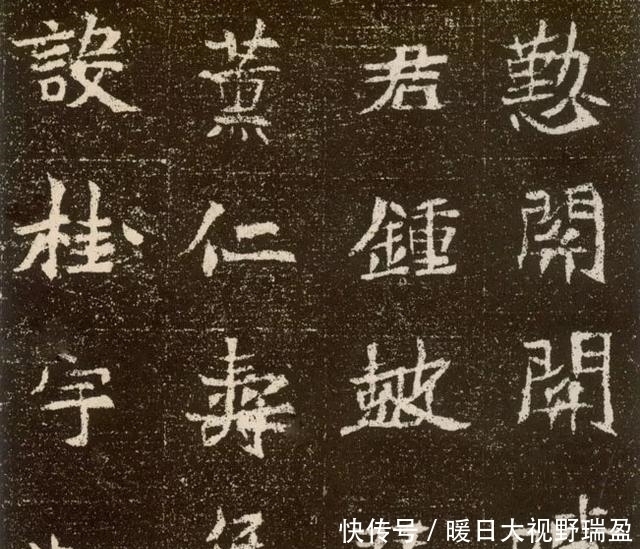 懃開開
君鍾皷
薰仁壽
設桂宇
快传号／暖日大视野瑞盈